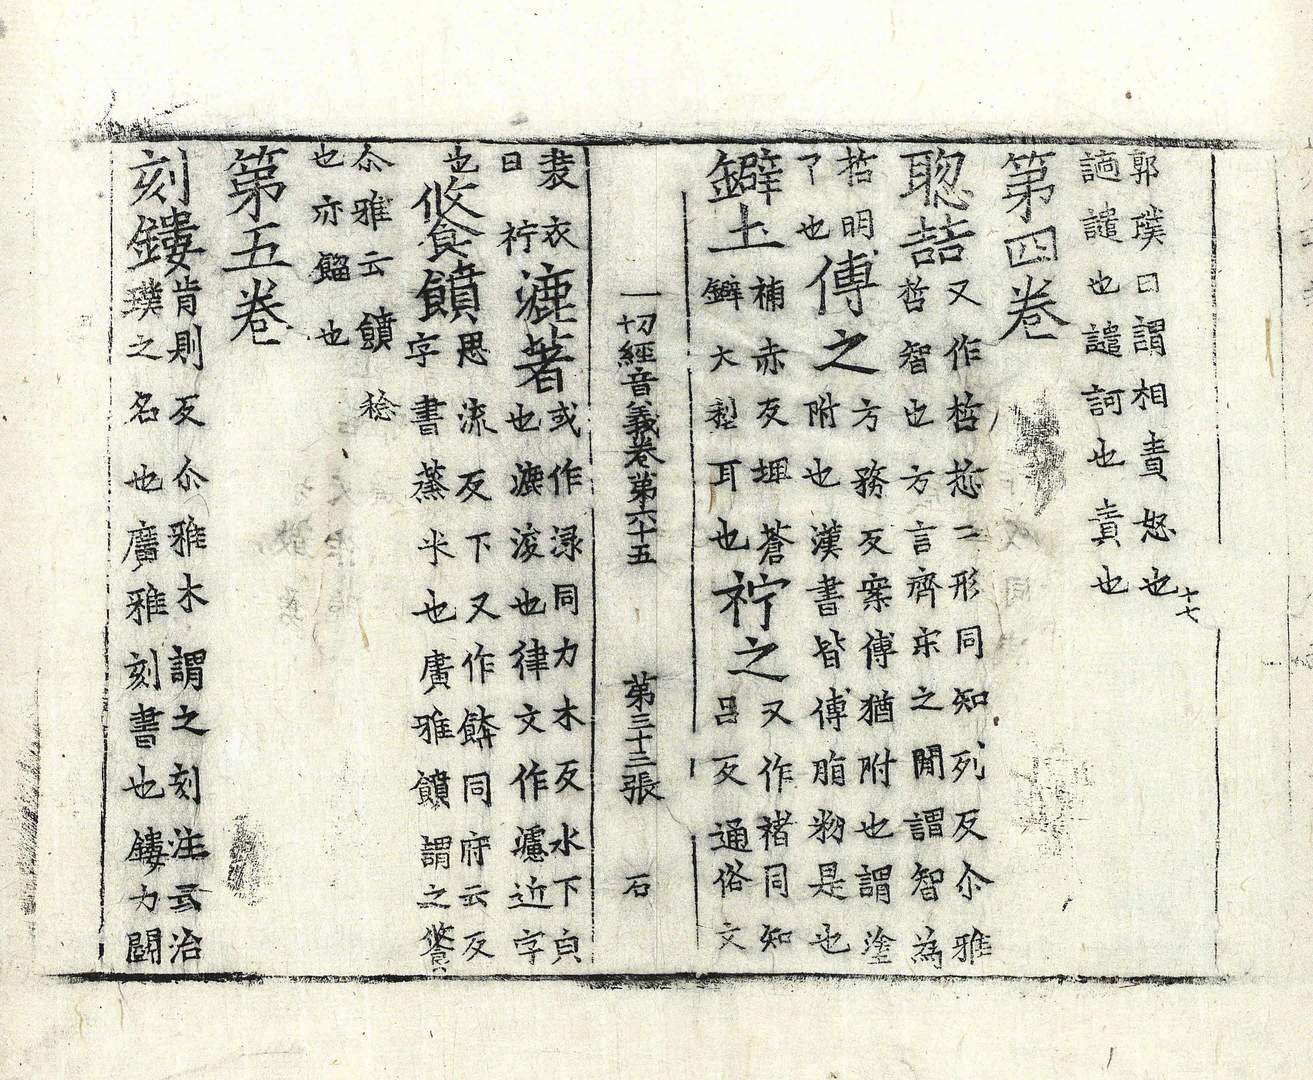 郭璞曰謂相責怒也
讁譴也譴訶也責也
十七
第四卷
聦喆又作哲悊二形同知列反尒雅
哲智也方言齊宋之間謂智為
哲明
了也
傅之方務反案傅猶附也謂塗
附也漢書皆傅脂粉是也
鐴土補赤反埤蒼
鐴大犁耳也
𥙆之又作褚同知
呂反通俗文
一切經音義卷第六十五 第三十三張 石
裝衣
曰𥙆
漉著或作渌同力木反水下皃
也漉浚也律文作㯲近字
也
餴饙思流反下又作餴同府云反
字書蒸米也廣雅饙謂之餐
尒雅云饙稔
也亦餾也
第五卷
刻鏤肯則反尒雅木謂之刻注云治
璞之名也廣雅刻書也鏤力鬭